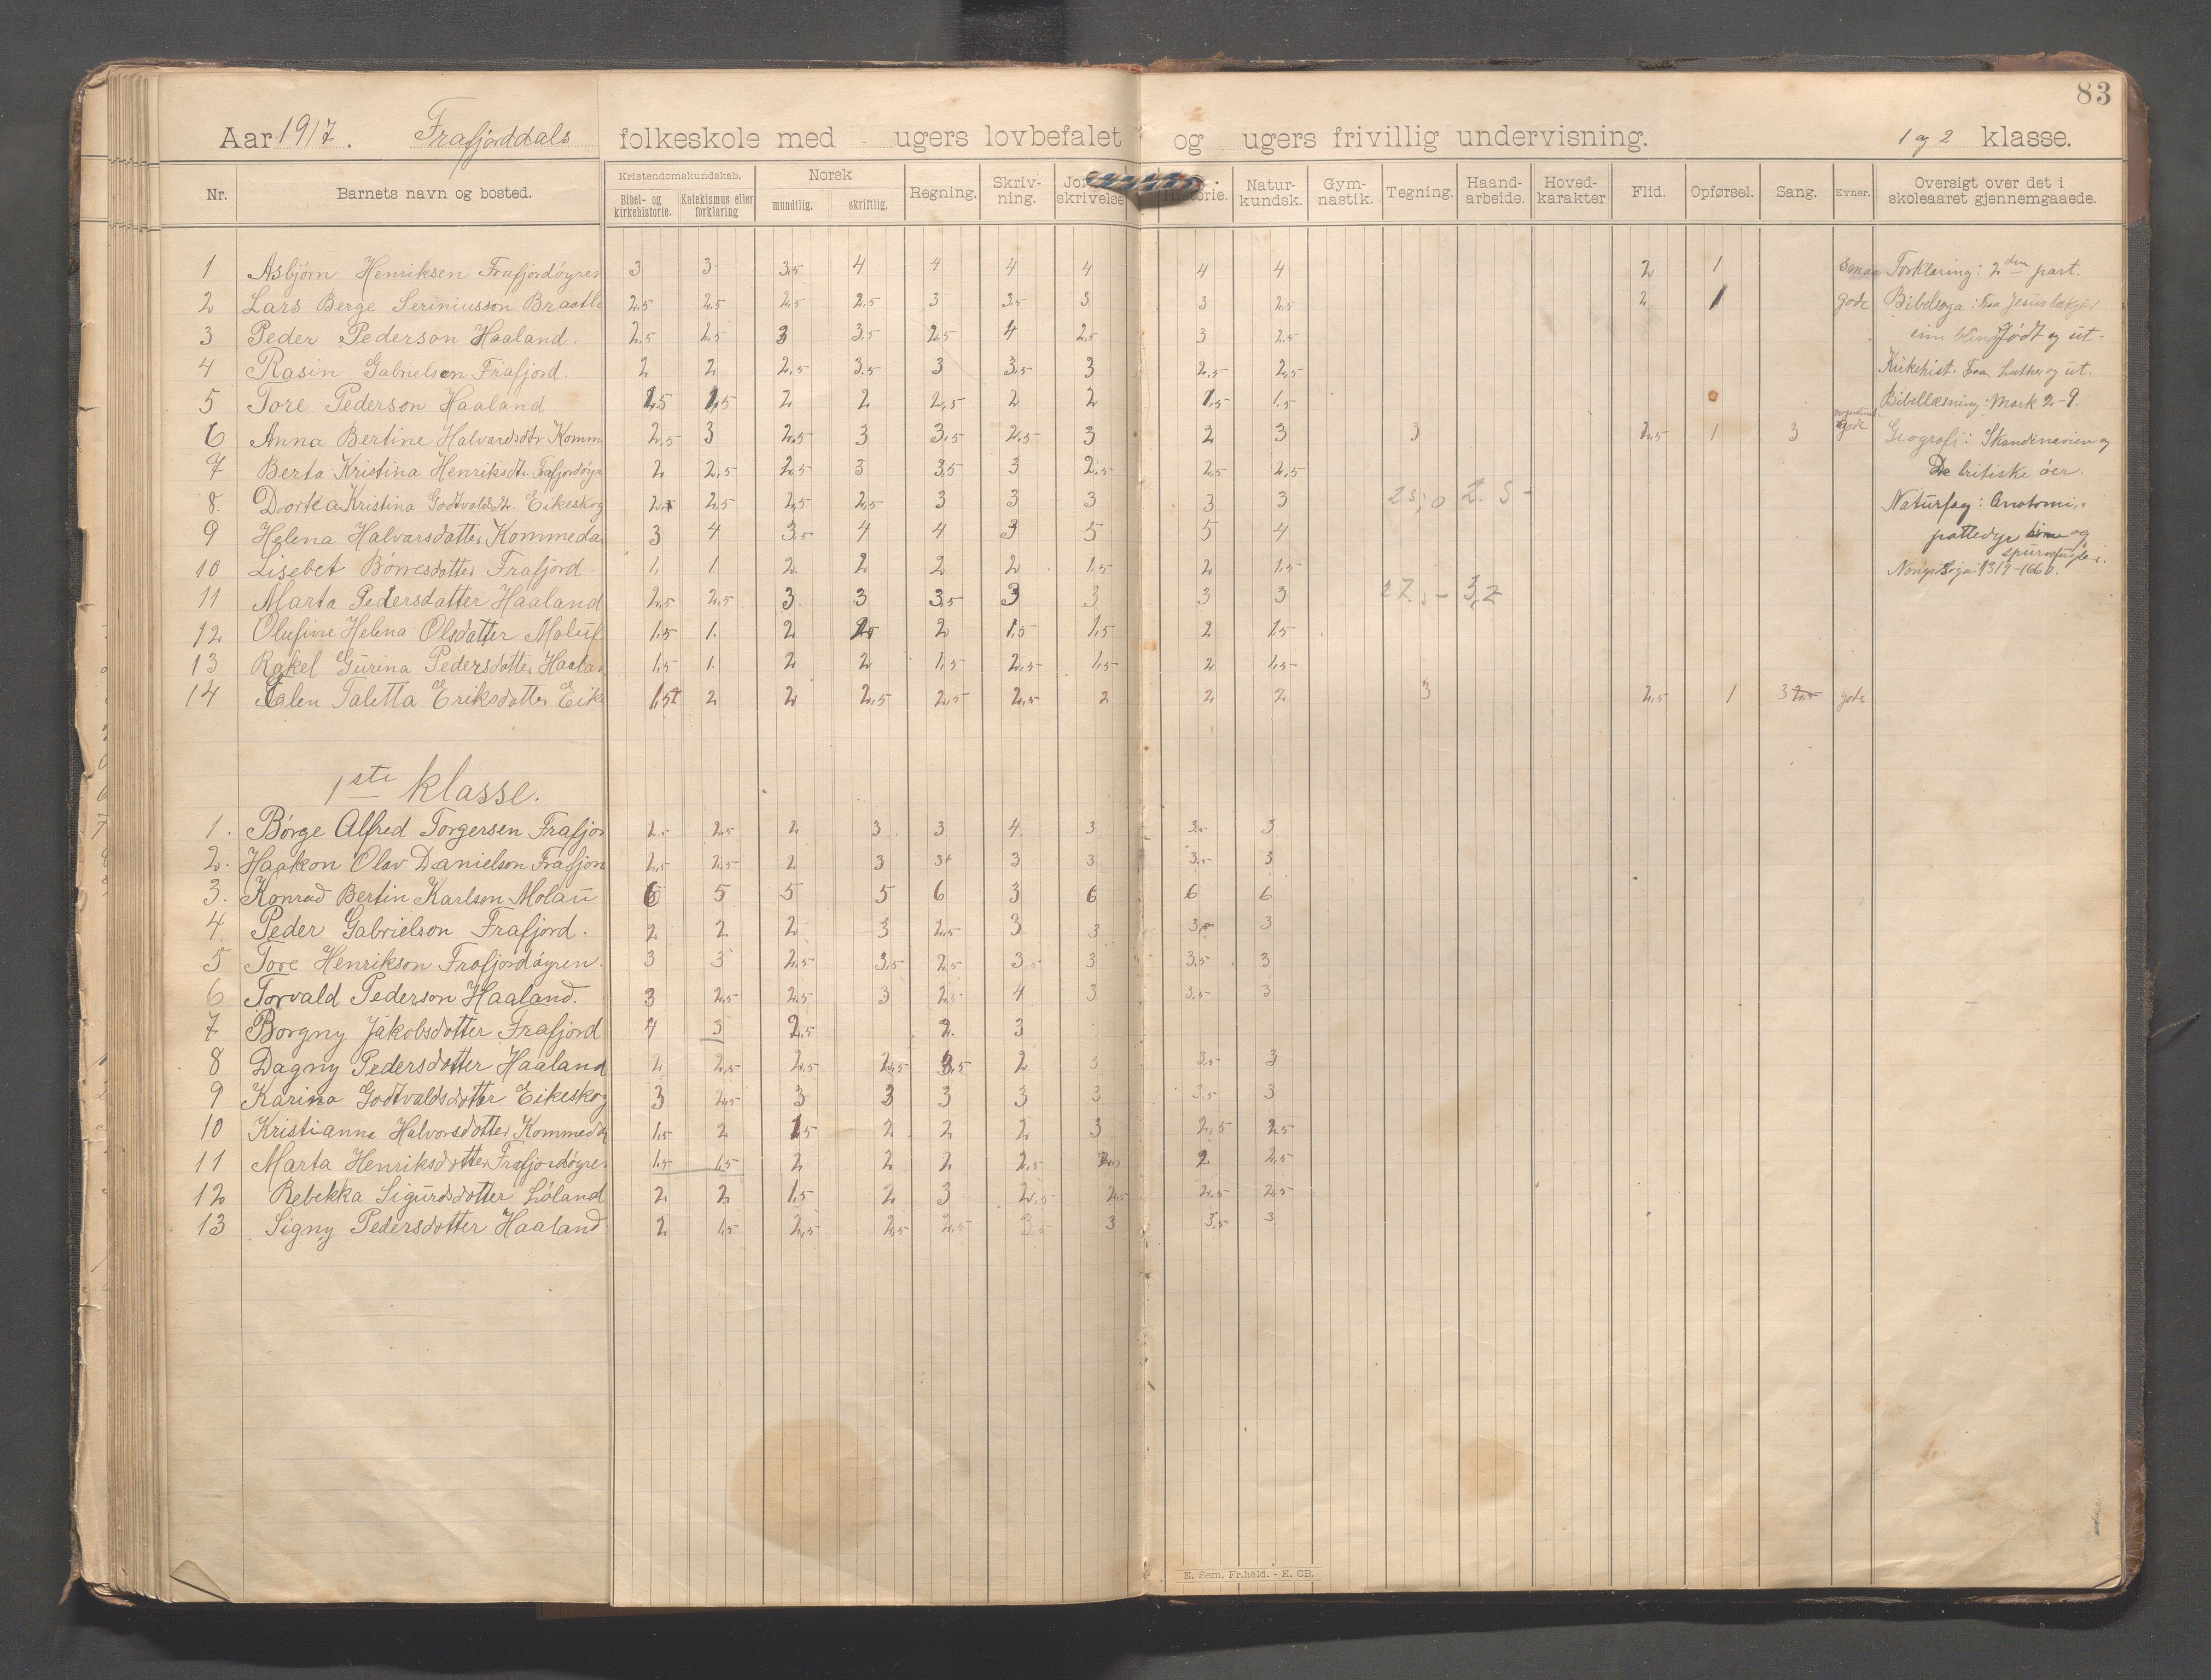 83
Aar 1917. Frafjorddals folkeskole med ugers lovbefalet og ugers frivillig undervisning. 1 og 2 klasse.
Nr. Barnets navn og bosted. Kristendomskundskab. Bibel- og kirkehistorie. Katekismus eller forklaring Norsk mundtlig. skriftlig. Regning. Skriv-ning. skrivelse Historie. Natur-kundsk. Gym-nastik. Tegning. Haand-arbeide. Hoved-karakter Flid. Opførsel. Sang. Evner. Oversigt over det i skoleaaret gjennemgaaede.
1 Asbjørn Henriksen Frafjordøyren 3 3 3,5 4 4 4 4 4 4 2 1 smaa Forklaring: 2den part.
2 Lars Berge Seriniusson Braatle 2,5 2,5 2,5 2,5 3 3,5 3 3 2,5 2 1 gode Bibelsoga: Fraa Jesus lækjer
3 Peder Pederson Haaland. 2,5 2,5 3 3,5 2,5 4 2,5 3 2,5 ein blindfødt og ut-
4 Rasin Gabrielson Frafjord. 2 2 2,5 3,5 3 3,5 3 2,5 2,5 Kirkehist. Fraa Luther og ut.
5 Tore Pederson Haaland 1,5 1,5 2 2 2,5 2 2 1,5 1,5 Bibellæsning: Mark 2-9.
6 Anna Bertine Halvardsdtr Komm 2,5 3 2,5 3 3,5 2,5 3 2 3 3 2,5 1 3 gode Geografi: Skandinavien og
7 Berta Kristina Henriksdtr. Frafjordøyr 2 2,5 2,5 3 3,5 3 2,5 2,5 2,5 De britiske øer.
8. Dortea Kristina Godtvaldsdtr. Eikeskog 2,5 2,5 2,5 2,5 3 3 3 3 3 25,0 2.5- Naturfag: Anatomi,
9 Helena Halvarsdatter Kommeda 3 4 3,5 4 4 3 5 5 4 pattedyr og spurvefugle
10 Lisebet Børresdatter Frafjord. 1, 1. 2 2 2 2 1,5 2 1,5 Norigs Soga: 1319-1660.
11 Marta Pedersdatter Haaland 2,5 2,5 3 3 3,5 3 3 3 3 27.- 3,2
12 Olufine Helena Olsdatter Molauf 1,5 1. 2 2,5 2 1,5 1,5 2 1,5
13 Rakel Gurina Pedersdatter Haalan 1,5 1. 2 2 1,5 2,5 1,5 2 1,5
14 Talen Taletta Eriksdatter Eik 1,5 2 2 2,5 2,5 2,5 2 2 2 3 2,5 1 3 gode
1ste klasse.
1. Børge Alfred Torgersen Frafjor 2,5 2,5 2 3 3 4 3 3,5 3
2. Haakon Olav Danielson Frafjor 2,5 2,5 2 3 3+ 3 3 3,5 3
3. Konrad Bertin Karlson Molau 6 5 5 5 6 3 6 6 6
4. Peder Gabrielson Frafjord. 2 2 2 3 2,5 3 3 3,5 3
5 Tore Henrikson Frafjordøyren. 3 3 2,5 3,5 2,5 3,5 3 3,5 3
6 Torvald Pederson Haaland. 3 2,5 2,5 3 2,5 4 3 3,5 3
7 Borgny Jakobsdotter Frafjord 4 3 2,5 2. 3
8 Dagny Pedersdotter Haaland 2 2,5 2,5 2,5 3,5 2 3 3,5 3
9 Karina Godtvaldsdotter Eikeskog 3 2,5 3 3 3 3 3 3,5 3
10 Kristianna Halvorsdotter Kommeda 1,5 2 1,5 2 2 2 3 2,5 2,5
11 Marta Henriksdotter Frafjordøyre 1,5 1,5 2 2 2 2,5 2,5 2 2,5
12 Rebekka Sigurdsdotter Løland 2 2 1,5 2 3 2,5 2,5 2,5 2,5
13 Signy Pedersdotter Haaland 2 1,5 2,5 2,5 2,5 3,5 3 3,5 3
E. Sem, Fr.hald. - E. CB.